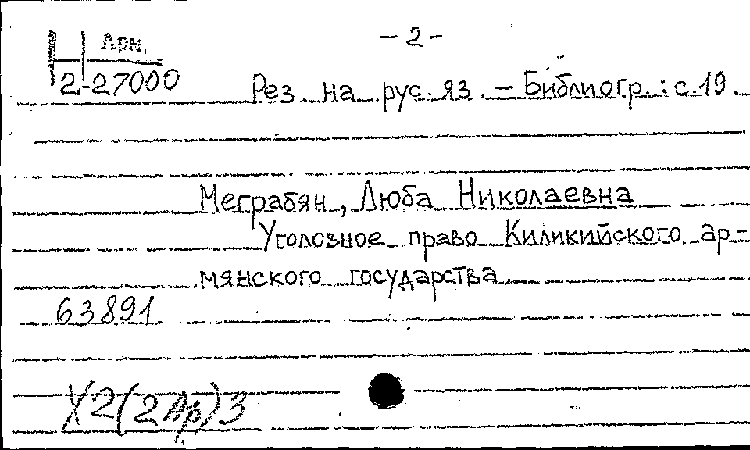 - 2 -
Арм.
2-27000
Рез. на рус. яз. - Библиогр.: с. 19.
Меграбян, Люба Николаевна
Уголовное право Киликийского ар-
мянского государства
63891
Х2(2Ар)3